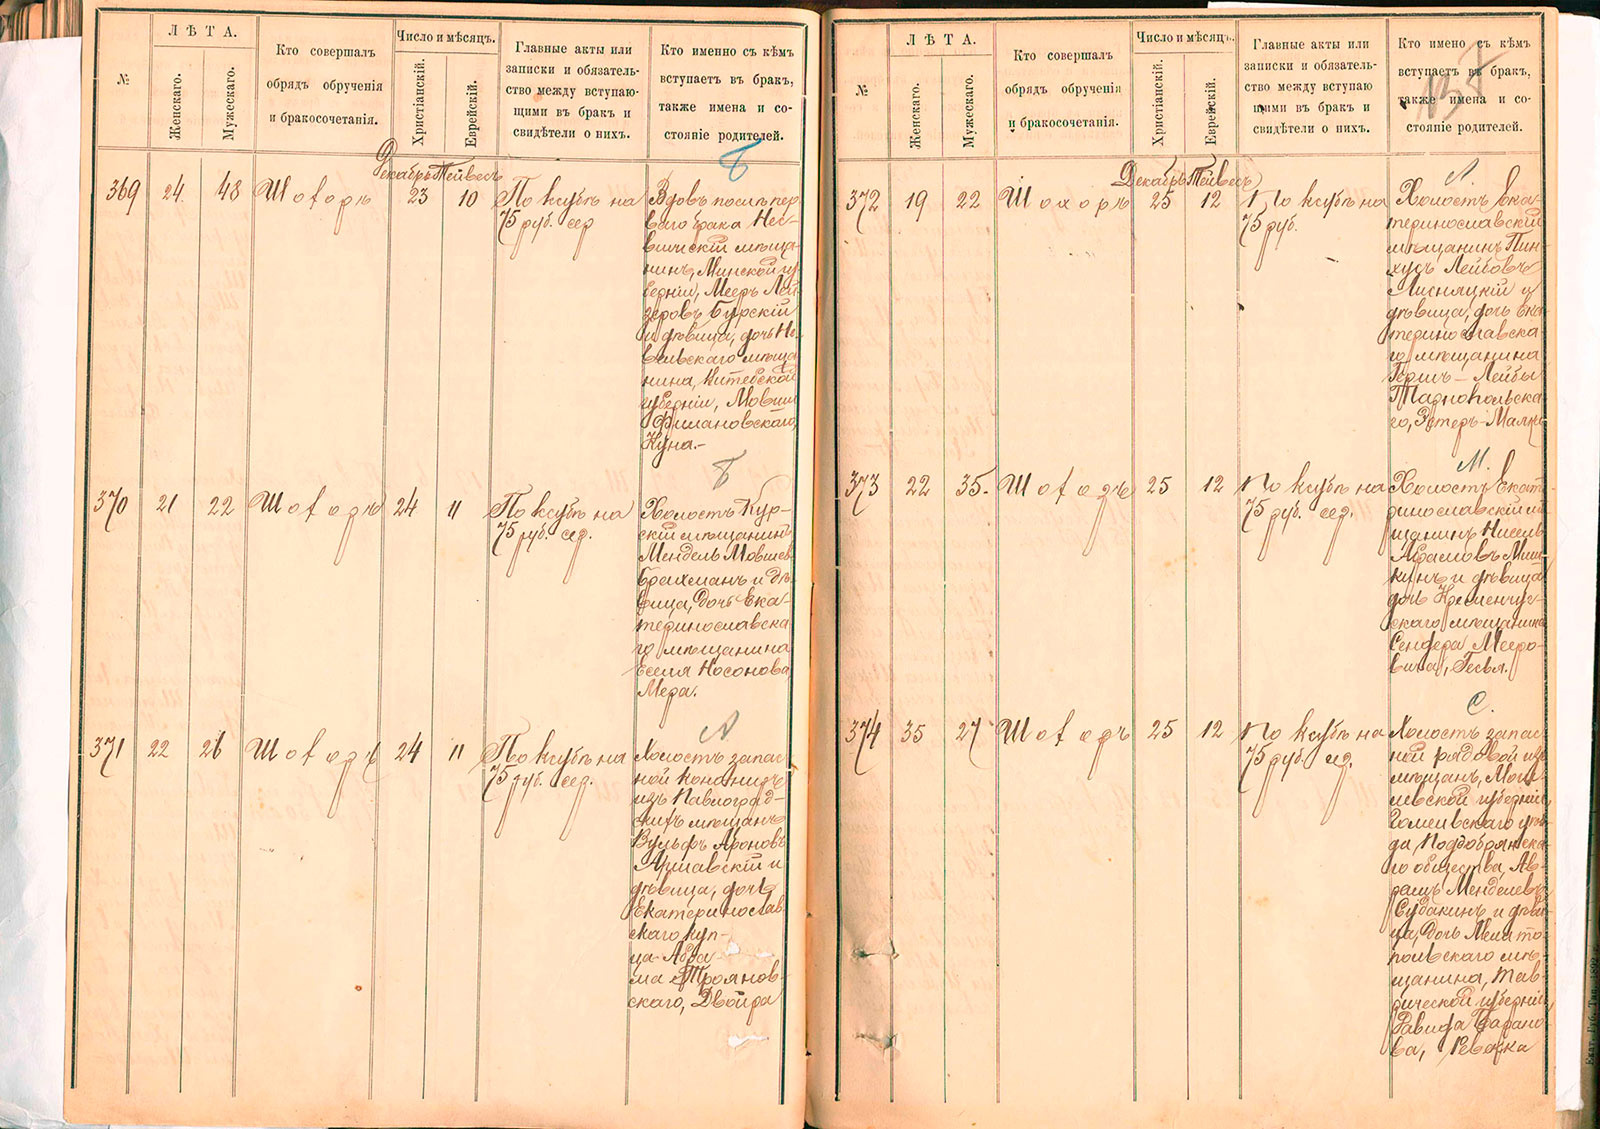 №
Л Ѣ Т А.
Женскаго.
Мужескаго.
Кто совершалъ
обрядъ обрученія
и бракосочетанія.
Число и мѣсяцъ.
Христіанскій.
Еврейскій.
Главные акты или
записки и обязатель-
ство между вступаю-
щими въ бракъ и
свидѣтели о нихъ.
Кто именно съ кѣмъ
вступаетъ въ бракъ,
также имена и со-
стояніе родителей.
Декабрь Тейвесъ
Б
369 24 48 Шоторъ 23 10
По ксубѣ на
75 руб. сер
Вдовъ послѣ пер
ваго брака Нес-
вижскій мѣща-
нинъ, Минской гу
берніи, Мееръ Лей
зеровъ Бурскій
и дѣвица, дочь Не-
вельскаго мѣща
нина, Витебской
губерніи, Мовши
Филановскаго,
Куна.-
Б
370 21 22 Шоторъ 24 11
По ксубѣ на
75 руб. сер.
Холостъ Кур-
скій мѣщанинъ
Мендель Мовшев
Брахманъ и дѣ
вица, дочь Ека-
теринославска
го мѣщанина
Еселя Носонова
Мера.
А
371 22 26 Шоторъ 24 11
По ксубѣ на
75 руб. сер.
Холостъ запас
ной канониръ
изъ Павлоград-
скихъ мѣщанъ
Вульфъ Ароновъ
Аршавскій и
дѣвица, дочь
Екатеринослав
скаго куп-
ца Абра-
ма Трояновс-
скаго, Двойра
№
Л Ѣ Т А.
Женскаго.
Мужескаго.
Кто совершалъ
обрядъ обрученія
и бракосочетанія.
Число и мѣсяцъ.
Христіанскій.
Еврейскій.
Главные акты или
записки и обязатель-
ство между вступаю
щими въ бракъ и
свидѣтели о нихъ.
Кто имено съ кѣмъ
вступаетъ въ бракъ,
также имена и со-
стояніе родителей.
Декабрь Тейвесъ
Л.
372 19 22 Шохоръ 25 12
По ксубѣ на
75 руб.
Холостъ Ека-
теринославскій
мѣщанинъ Пин-
хусъ Лейбовъ
Лисняцкій и
дѣвица, дочь Ека
теринославска-
го мѣщанина
Гершъ-Лейбы
Тарнопольска-
го, Эстеръ-Малка
М.
373 22 35 Шоторъ 25 12
По ксубѣ на
75 руб. сер.
Холостъ Екат-
ринославскій мѣ
щанинъ Нисель
Абрамовъ Миш-
кинъ и дѣвица
дочь Кременчуг-
скаго мѣщанина
Сендера Меero-
вича, Гесья.
С.
374 35 27 Шоторъ 25 12
По ксубѣ на
75 руб. сер.
Холостъ запас
ной рядовой изъ
мѣщанъ, Моги-
левской губерніи
Гомельскаго уѣз
да, Поддобрянска
го общества, Ав-
рамъ Менделевъ
Судакинъ и дѣви
ца, дочь Мелито-
польскаго мѣ-
щанина, Тав-
рической губерніи,
Давида Барано-
ва, Ревекка